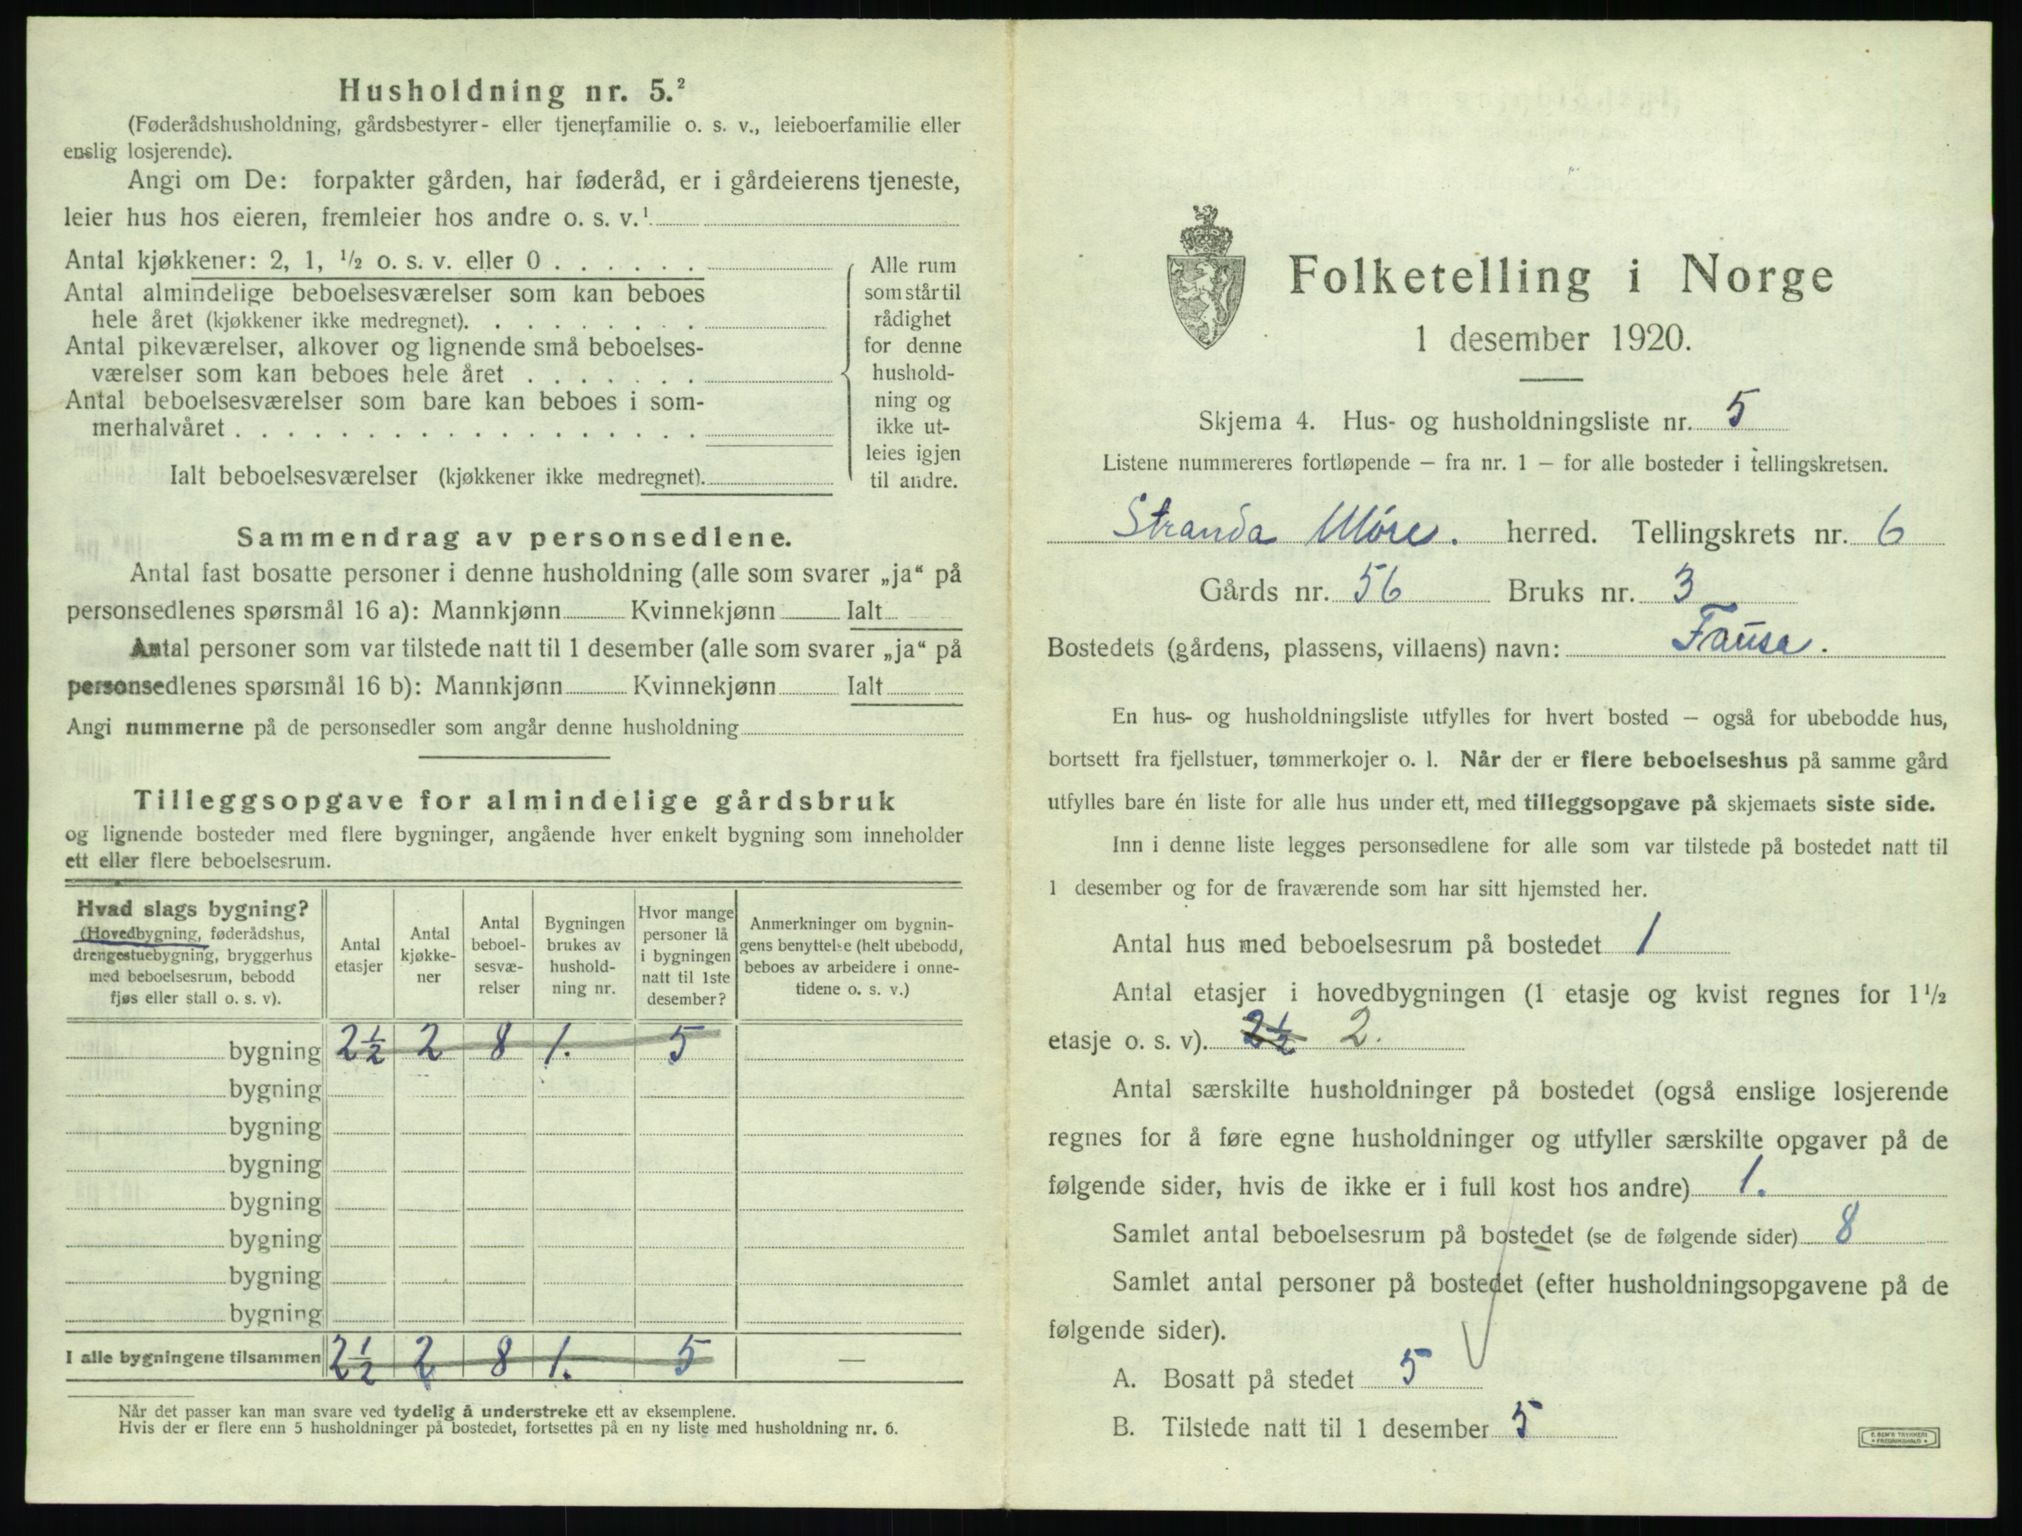 Husholdning nr. 5.²
(Føderådshusholdning, gårdsbestyrer- eller tjenerfamilie o. s. v., leieboerfamilie eller
enslig losjerende).
Angi om De: forpakter gården, har føderåd, er i gårdeierens tjeneste,
leier hus hos eieren, fremleier hos andre o. s. v.¹
Antal kjøkkener: 2, 1, ½ o. s. v. eller 0 . . . . . .
Antal almindelige beboelsesværelser som kan beboes
hele året (kjøkkener ikke medregnet). . . . . . . . .
Antal pikeværelser, alkover og lignende små beboelses-
værelser som kan beboes hele året . . . . . . .
Antal beboelsesværelser som bare kan beboes i som-
merhalvåret . . . . . . . . . . . . . . . . . .
Ialt beboelsesværelser (kjøkkener ikke medregnet).
Alle rum
som står til
rådighet
for denne
hushold-
ning og
ikke ut-
leies igjen
til andre.
Sammendrag av personsedlene.
Antal fast bosatte personer i denne husholdning (alle som svarer „ja“ på
personsedlenes spørsmål 16 a): Mannkjønn Kvinnekjønn Ialt
Antal personer som var tilstede natt til 1 desember (alle som svarer „ja“ på
personsedlenes spørsmål 16 b): Mannkjønn Kvinnekjønn Ialt
Angi nummerne på de personsedler som angår denne husholdning
Tilleggsopgave for almindelige gårdsbruk
og lignende bosteder med flere bygninger, angående hver enkelt bygning som inneholder
ett eller flere beboelsesrum.
Hvad slags bygning?
(Hovedbygning, føderådshus,
drengestuebygning, bryggerhus
med beboelsesrum, bebodd
fjøs eller stall o. s. v).
Antal
etasjer
Antal
kjøkke-
ner
Antal
beboel-
sesvæ-
relser
Bygningen
brukes av
hushold-
ning nr.
Hvor mange
personer lå
i bygningen
natt til 1ste
desember?
Anmerkninger om bygnin-
gens benyttelse (helt ubebodd,
beboes av arbeidere i onne-
tidene o. s. v.)
bygning 2½ 2 8 1. 5
bygning
bygning
bygning
bygning
bygning
bygning
bygning
I alle bygningene tilsammen 2½ 2 8 1. 5 —
Når det passer kan man svare ved tydelig å understreke ett av eksemplene.
Hvis der er flere enn 5 husholdninger på bostedet, fortsettes på en ny liste med husholdning nr. 6.
Folketelling i Norge
1 desember 1920.
Skjema 4. Hus- og husholdningsliste nr. 5
Listene nummereres fortløpende – fra nr. 1 – for alle bosteder i tellingskretsen.
Stranda Møre. herred. Tellingskrets nr. 6
Gårds nr. 56 Bruks nr. 3
Bostedets (gårdens, plassens, villaens) navn: Fausa.
En hus- og husholdningsliste utfylles for hvert bosted – også for ubebodde hus,
bortsett fra fjellstuer, tømmerkojer o. l. Når der er flere beboelseshus på samme gård
utfylles bare én liste for alle hus under ett, med tilleggsopgave på skjemaets siste side.
Inn i denne liste legges personsedlene for alle som var tilstede på bostedet natt til
1 desember og for de fraværende som har sitt hjemsted her.
Antal hus med beboelsesrum på bostedet 1
Antal etasjer i hovedbygningen (1 etasje og kvist regnes for 1½
etasje o. s. v). 2½ 2.
Antal særskilte husholdninger på bostedet (også enslige losjerende
regnes for å føre egne husholdninger og utfyller særskilte opgaver på de
følgende sider, hvis de ikke er i full kost hos andre) 1.
Samlet antal beboelsesrum på bostedet (se de følgende sider) 8
Samlet antal personer på bostedet (efter husholdningsopgavene på de
følgende sider).
A. Bosatt på stedet 5
B. Tilstede natt til 1 desember 5